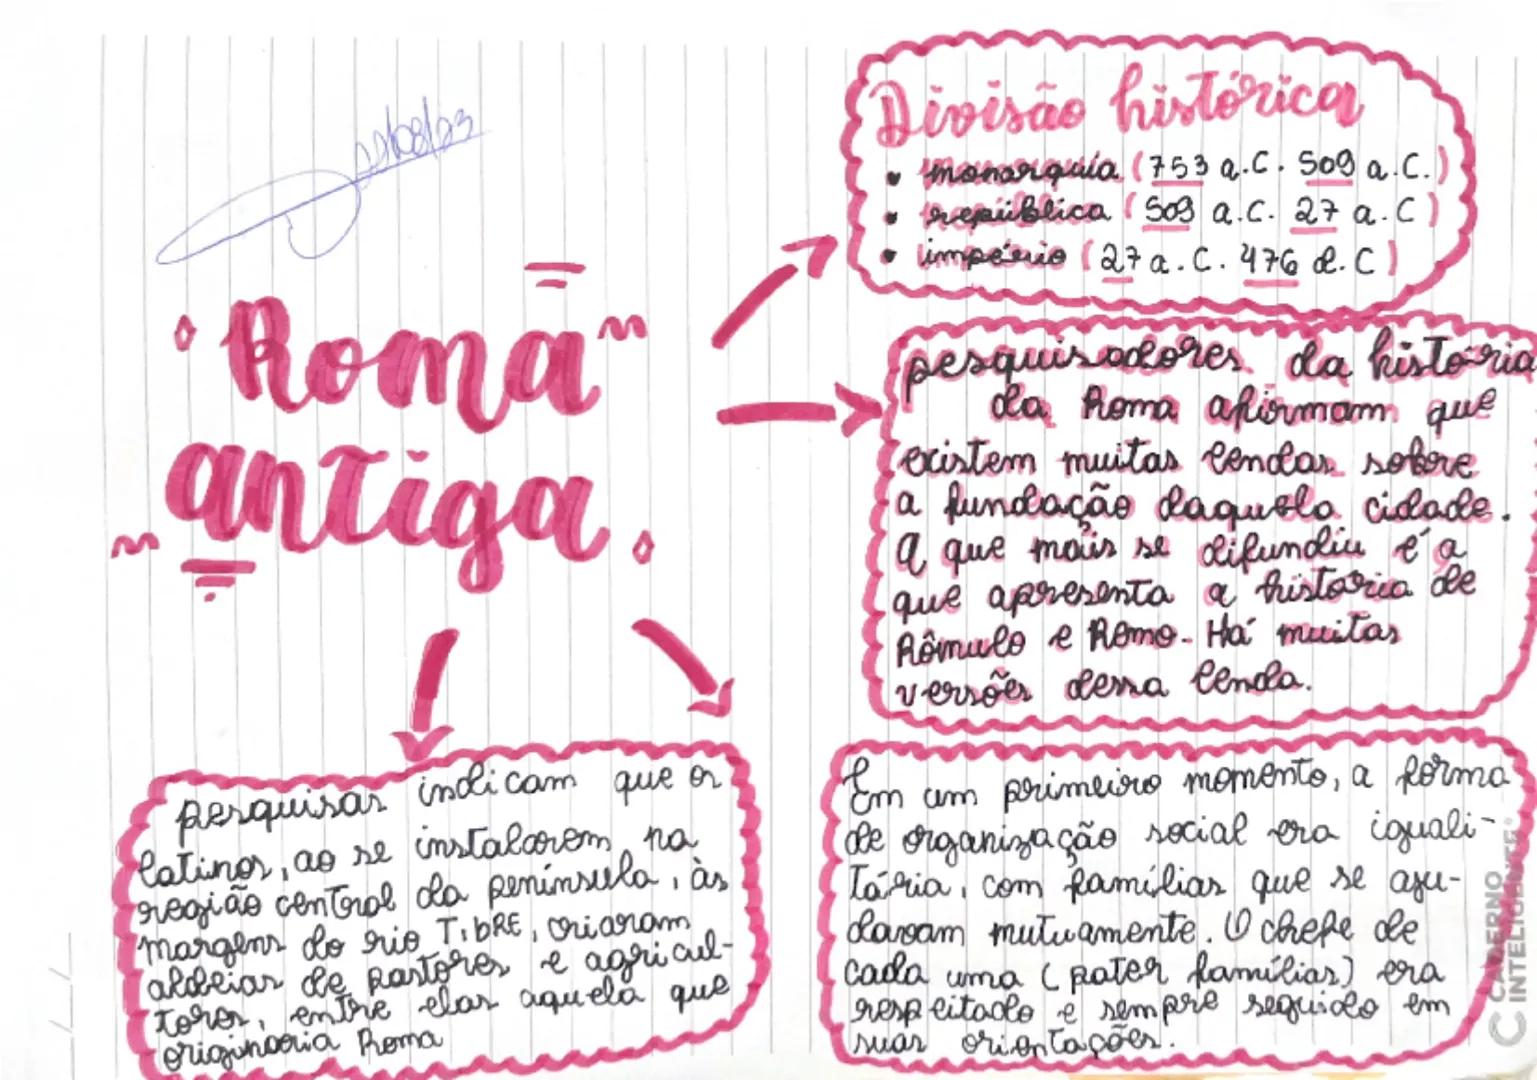 Roma
antiga
Divisão histórica
• monarquia (753 a.C. 509 a.C.)
• república (509 a.C. 27 a.C)
• império (27 a.C. 476 d.C)
pesquisadores da história
da Roma afirmam que
existem muitas lendas sobre
a fundação daquela cidade.
A que mais se difundiu é a
que apresenta a história de
Rômulo e Remo. Há muitas
versões dessa lenda.
pesquisas indicam que os
latinos, ao se instalarem na
região central da península, às
margens do rio TibRE, criaram
aldeias de pastores e agricul-
tores, entre elas aquela que
originaria Roma
Em um primeiro momento, a forma
de organização social era iguali-
tária, com famílias que se aju-
davam mutuamente. O chefe de
cada uma (pater famílias) era
respeitado e sempre seguido em
suas orientações.
CADERNO
INTELIGENTE